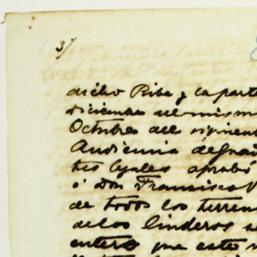 37
dicho Ribe y la parte
diciembre del mismo
Octubre del siguiente
Audiencia de
tes Cyales aprobó
ó Don Francisco
de todos los terren
de los linderos se
enteros que este